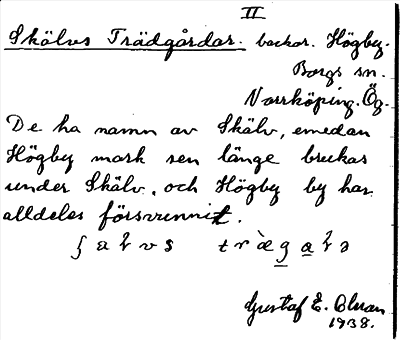 II
Skälvs Trädgårdar. backar. Högby.
Borgs sn.
Norrköping. Ög.
De ha namn av Skälv, emedan
Högby mark sen länge brukas
under Skälv, och Högby by har
alldeles försvunnit.
Gustaf E.
1938.